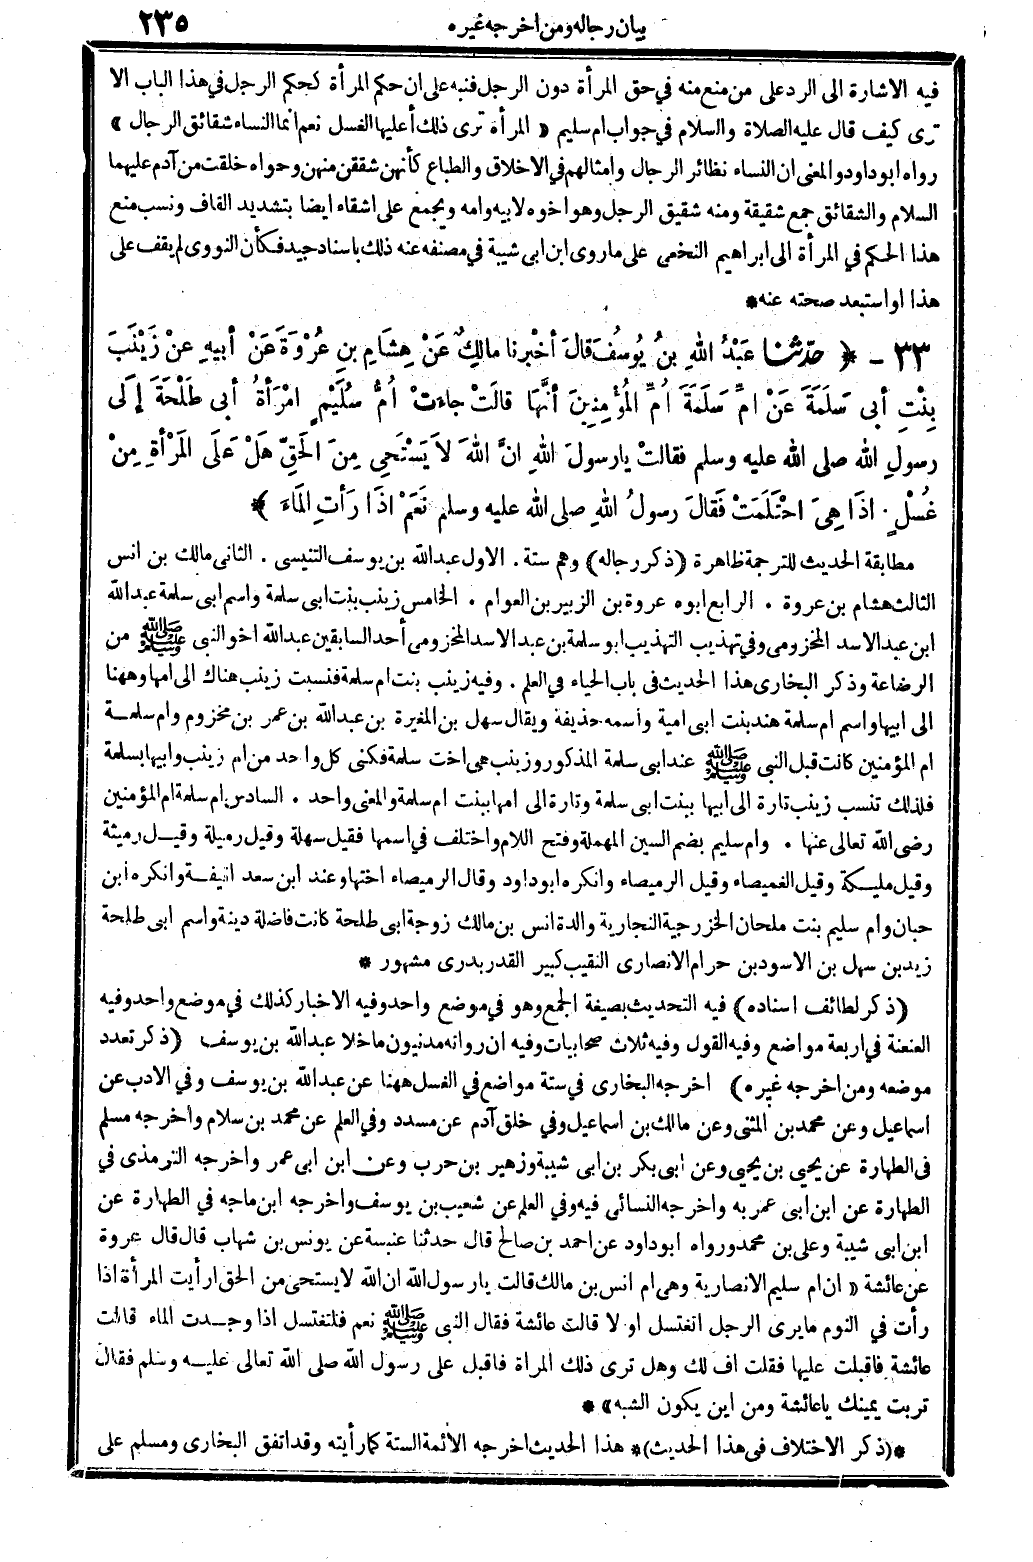 بيان رجاله ومن اخرجه غيره ٢٣٥
فيه الاشارة الى الرد على من منع منه في حق المرأة دون الرجل فنبه على ان حكم المرأة كحكم الرجل في هذا الباب الا
ترى كيف قال عليه الصلاة والسلام في جواب ام سليم « المرأة ترى ذلك أعليها الغسل نعم انما النساء شقائق الرجال »
رواه ابو داود والمعنى ان النساء نظائر الرجال وامثالهم في الاخلاق والطباع كأنهن شققن منهن وحواء خلقت من آدم عليهما
السلام والشقائق جمع شقيقة ومنه شقيق الرجل وهو اخوه لابيه وامه ويجمع على اشقاء ايضا بتشديد القاف ونسب منع
هذا الحكم في المرأة الى ابراهيم النخعى على ما روى ابن ابى شيبة في مصنفه عنه ذلك باسناد جيد فكأن النووى لم يقف على
هذا او استبعد صحته عنه *
٣٣ - ﴿ حدّثنا عَبْدُ اللهِ بنُ يُوسُفَ قالَ أخْبرنا مالِكٌ عَنْ هِشَامِ بنِ عُرْوَةَ عَنْ أبيهِ عنْ زَيْنَبَ
بِنْتِ أبى سَلَمَةَ عَنْ امِّ سَلَمَةَ اُمِّ المُؤْمِنِينَ أنَّهَا قالَتْ جاءَتْ اُمُّ سُلَيْمٍ امْرَأةُ أبى طَلْحَةَ إلَى
رسولِ اللهِ صلى الله عليه وسلم فقالتْ يارسولَ اللهِ انَّ اللهَ لاَ يَسْتَحْيِ مِنَ الحَقِّ هَلْ عَلَى المَرْأةِ مِنْ
غُسْلٍ اذَا هِيَ احْتَلَمَتْ فَقَالَ رسولُ اللهِ صلى الله عليه وسلم نَعَمْ اذَا رَأتِ المَاءَ ﴾ *
مطابقة الحديث للترجمة ظاهرة (ذكر رجاله) وهم ستة . الاول عبدالله بن يوسف التنيسى . الثانى مالك بن انس
الثالث هشام بن عروة . الرابع ابوه عروة بن الزبير بن العوام . الخامس زينب بنت ابى سلمة واسم ابى سلمة عبدالله
ابن عبد الاسد المخزومى وفي تهذيب التهذيب ابو سلمة بن عبد الاسد المخزومى أحد السابقين عبدالله اخو النبى ﷺ من
الرضاعة وذكر البخارى هذا الحديث فى باب الحياء في العلم . وفيه زينب بنت ام سلمة فنسبت زينب هناك الى امها وههنا
الى ابيها واسم ام سلمة هند بنت ابى امية واسمه حذيفة ويقال سهل بن المغيرة بن عبدالله بن عمر بن مخزوم وام سلمة
ام المؤمنين كانت قبل النبى ﷺ عند ابى سلمة المذكور وزينب هى اخت سلمة فكنى كل واحد من ام زينب وابيها بسلمة
فلذلك تنسب زينب تارة الى ابيها ببنت ابى سلمة وتارة الى امها ببنت ام سلمة والمعنى واحد . السادس ام سلمة ام المؤمنين
رضى الله تعالى عنها . وام سليم بضم السين المهملة وفتح اللام واختلف في اسمها فقيل سهلة وقيل رميلة وقيل رميثة
وقيل مليكة وقيل الغميصاء وقيل الرميصاء وانكره ابو داود وقال الرميصاء اختها وعند ابن سعد انيفة وانكره ابن
حبان وام سليم بنت ملحان الخزرجية النجارية والدة انس بن مالك زوجة ابى طلحة كانت فاضلة دينة واسم ابى طلحة
زيد بن سهل بن الاسود بن حرام الانصارى النقيب كبير القدر بدرى مشهور *
(ذكر لطائف اسناده) فيه التحديث بصيغة الجمع وهو في موضع واحد وفيه الاخبار كذلك في موضع واحد وفيه
العنعنة في اربعة مواضع وفيه القول وفيه ثلاث صحابيات وفيه ان رواته مدنيون ما خلا عبدالله بن يوسف (ذكر تعدد
موضعه ومن اخرجه غيره) اخرجه البخارى في ستة مواضع في الغسل ههنا عن عبدالله بن يوسف وفي الادب عن
اسماعيل وعن محمد بن المثنى وعن مالك بن اسماعيل وفي خلق آدم عن مسدد وفي العلم عن محمد بن سلام واخرجه مسلم
فى الطهارة عن يحيى بن يحيى وعن ابى بكر بن ابى شيبة وزهير بن حرب وعن ابن ابى عمر واخرجه الترمذى في
الطهارة عن ابن ابى عمر به واخرجه النسائى فيه وفي العلم عن شعيب بن يوسف واخرجه ابن ماجه في الطهارة عن
ابن ابى شيبة وعلى بن محمد ورواه ابو داود عن احمد بن صالح قال حدثنا عنبسة عن يونس بن شهاب قال قال عروة
عن عائشة « ان ام سليم الانصارية وهى ام انس بن مالك قالت يارسول الله ان الله لا يستحى من الحق ارأيت المرأة اذا
رأت في النوم ما يرى الرجل اتغتسل او لا قالت عائشة فقال النبى ﷺ نعم فلتغتسل اذا وجدت الماء قالت
عائشة فاقبلت عليها فقلت اف لك وهل ترى ذلك المرأة فاقبل على رسول الله صلى الله تعالى عليه وسلم فقال
تربت يمينك يا عائشة ومن اين يكون الشبه » *
*(ذكر الاختلاف فى هذا الحديث)* هذا الحديث اخرجه الأئمة الستة كما رأيته وقد اتفق البخارى ومسلم على